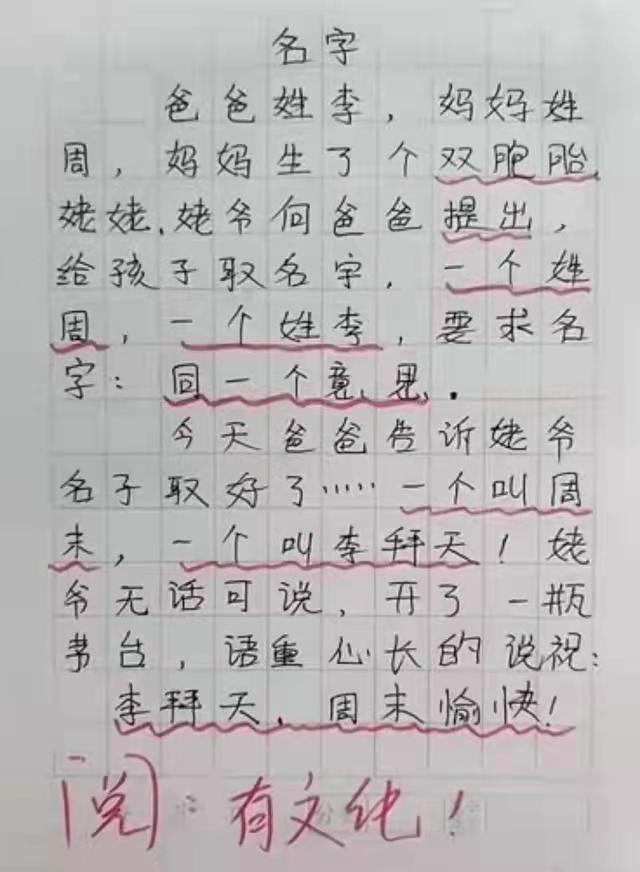 名字
爸爸姓李，妈妈姓
周，妈妈生了个双胞胎，
姥姥、姥爷向爸爸提出，
给孩子取名字，一个姓
周，一个姓李，要求名
字：同一个意思．
今天爸爸告诉姥爷
名子取好了……一个叫周
末，一个叫李拜天！姥
爷无话可说，开了一瓶
茅台，语重心长的说祝：
李拜天、周末愉快！
阅：有文化！